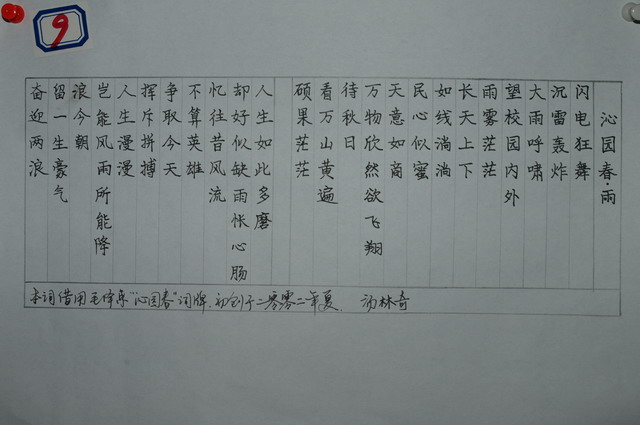 9
沁园春·雨
闪电狂舞
沉雷轰炸
大雨呼啸
望校园内外
雨雾茫茫
长天上下
如线淌淌
民心似蜜
天意如商
万物欣然欲飞翔
待秋日
看万山黄遍
硕果茫茫
人生如此多磨
却好似缺雨怅心肠
忆往昔风流
不算英雄
争取今天
挥斥拼搏
人生漫漫
岂能风雨所能降
浪今朝
留一生豪气
奋迎两浪
本词借用毛泽东“沁园春”词牌,初创于二零零二年夏. 汤林奇